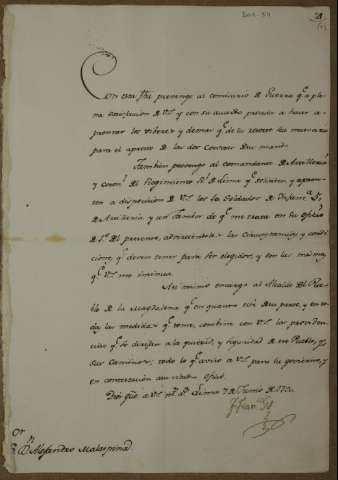 Con esta fha prevengo al comisario de Guerra qe a ple
na satisfaccion de VS y con su acuerdo pase a hacer a
prontar los viveres y demas qe
para el apresto de las dos Corvetas de su mando.
Tambien prevengo al comandante de Artilleria
y coronl del Regimiento Rl de Lima qe soliciten y apron
ten a disposicion de VS los Soldados de Infana
de Artilleria y un Tambor de qe me trata en su oficio
de del presente, advirtiendoles las circunstancias y condi
ciones qe deven tener para ser elegidos, y son las mismas
qe VS me insinua.
Asi mismo encargo al Alcalde del Pue
blo de la Magdalena qe en quanto este de su parte, y en to
das las medidas qe tome, combine con VS las providen
cias qe se dirijan a la quietud, y seguridad de ese Pueblo, y
sus Caminos; todo lo qe aviso a VS para su govierno, y
en contestacion a su oficio.
Dios gue a VS ms as Lima 7 de Junio de 1790.
Sor Dn Alejandro Malaspina.